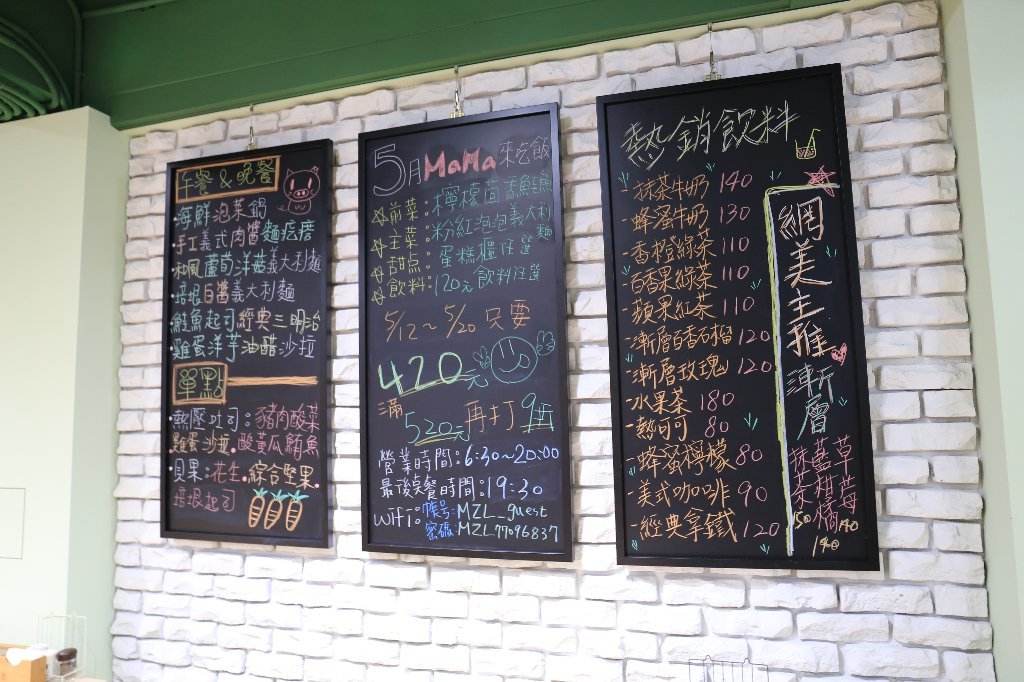 午餐 & 晚餐
海鮮泡菜鍋
·手工義式肉醬麵疙瘩
·和風蘆筍洋菇義大利麵
·培根白醬義大利麵
·鮭魚起司經典三明治
·雞蛋洋芋油醋沙拉
單點
·熱壓吐司:豬肉酸菜
雞蛋沙拉.酸黃瓜鮪魚
·貝果:花生.綜合堅果.
培根起司
5月MaMa來吃飯
前菜:檸檬茴香鮭魚
主菜:粉紅泡泡義大利麵
甜點:蛋糕櫃任選
飲料:120元飲料任選
5/12~5/20 只要
420元
滿520元再打9折
營業時間:6:30~20:00
最後点餐時間:19:30
WiFi:帳号:MZL_guest
密碼:MZL77096837
熱銷飲料
-抹茶牛奶 140
-蜂蜜牛奶 130
-香橙綠茶 110
-百香果綠茶 110
-蘋果紅茶 110
-漸層百香石榴 120
-漸層玫瑰 120
-水果茶 180
-熱可可 80
-蜂蜜檸檬 80
-美式咖啡 90
-經典拿鐵 120
網美主推漸層
草莓 140
藍柑橘 140
抹茶 150